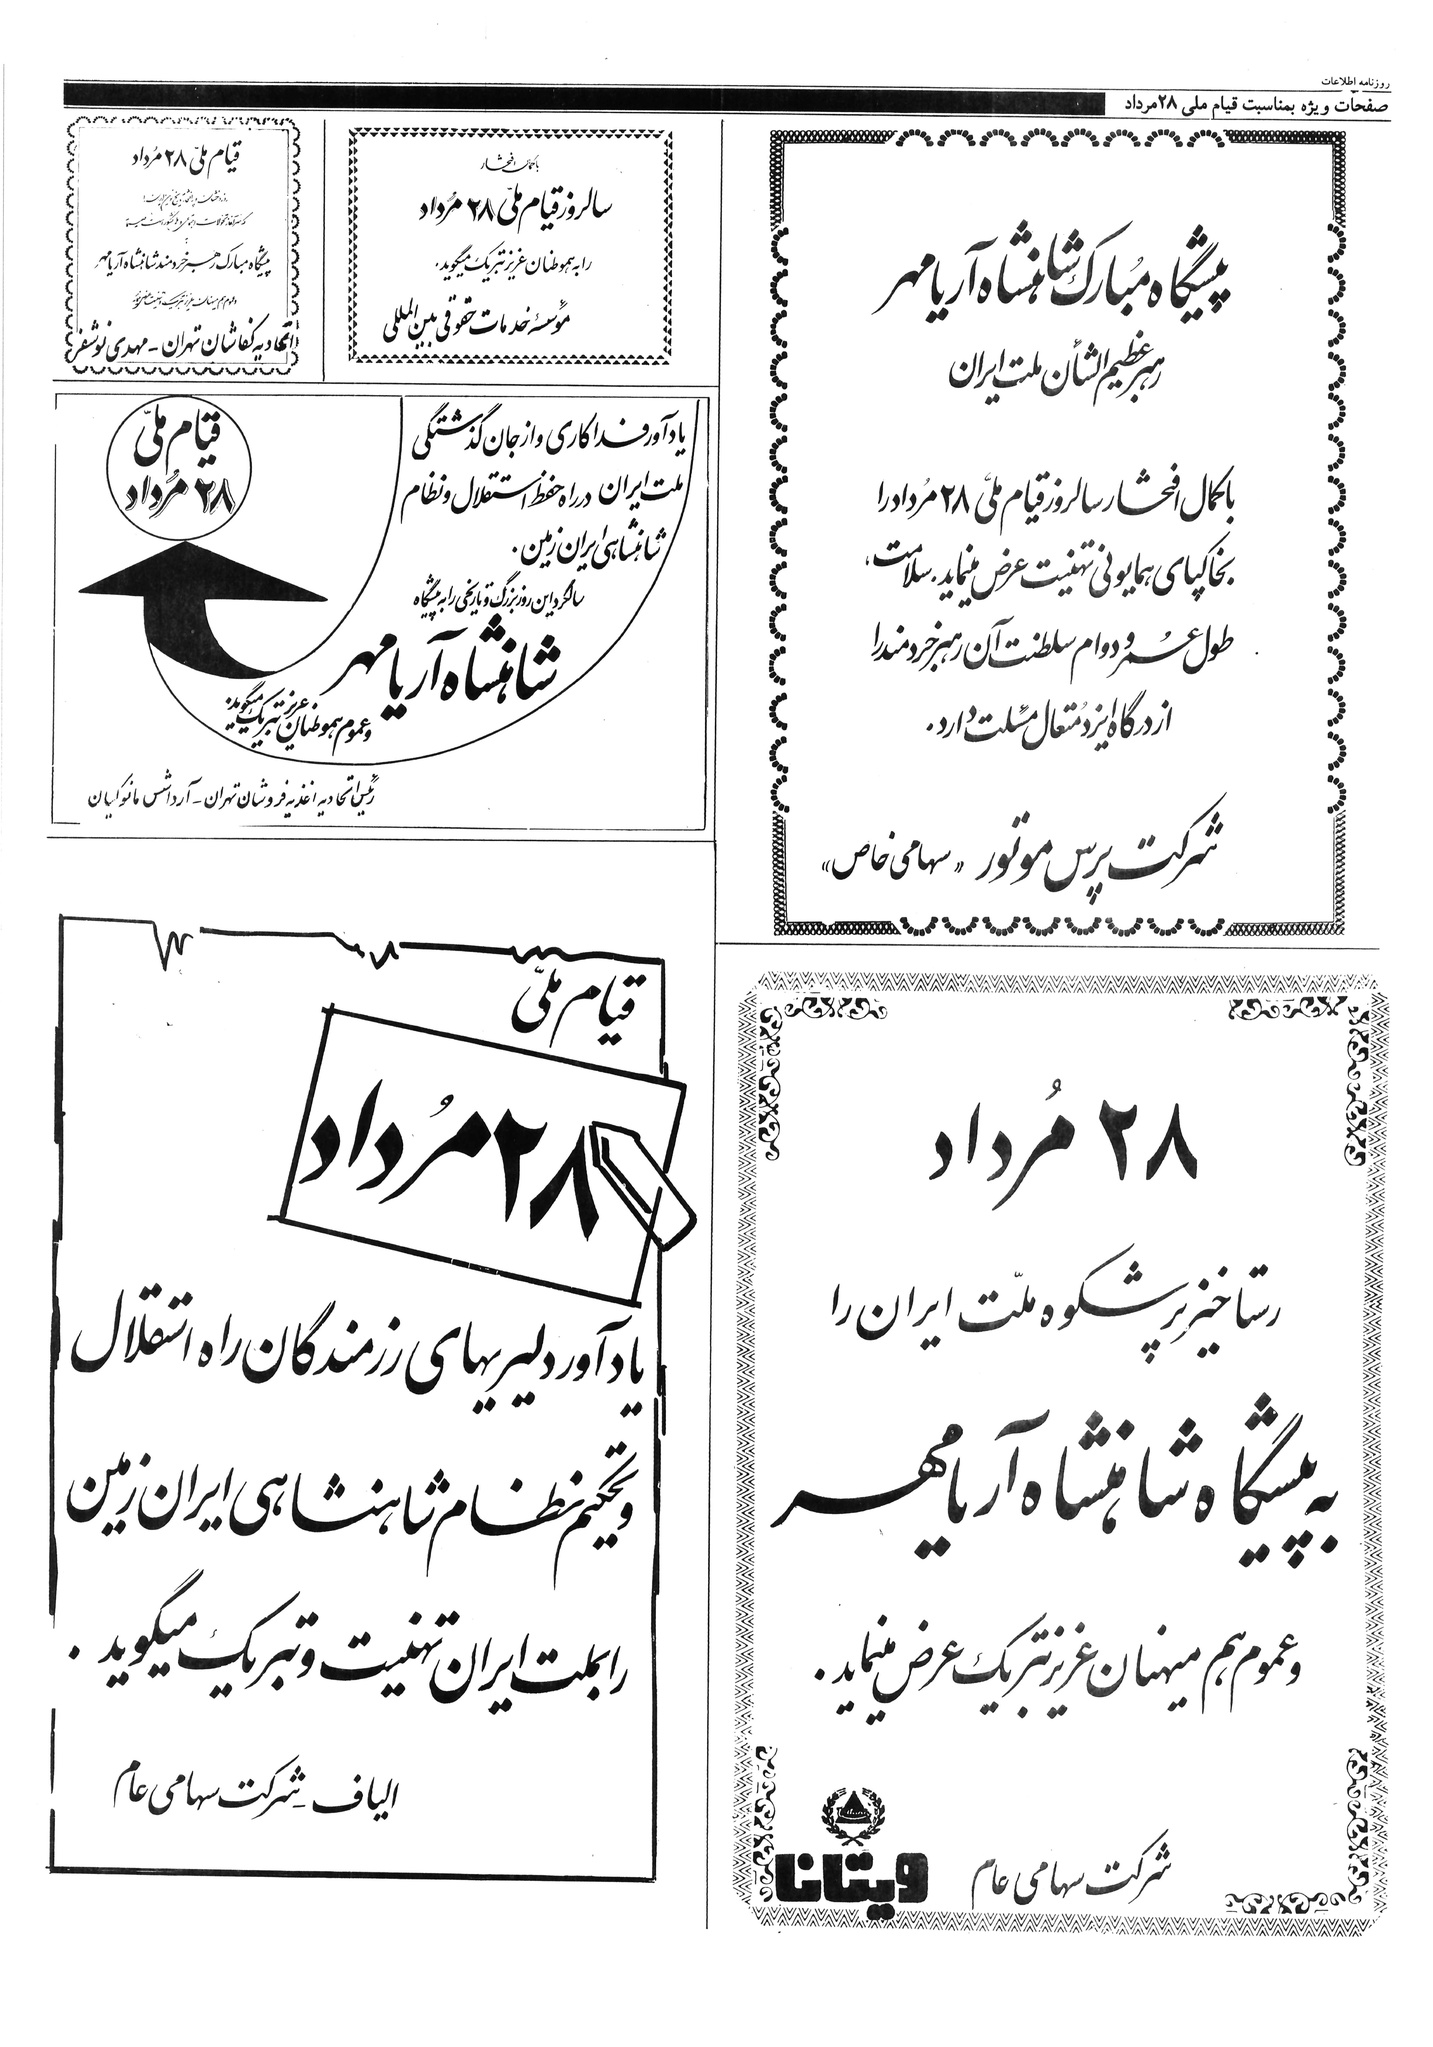 روزنامه اطلاعات
صفحات ویژه بمناسبت قیام ملی ۲۸ مرداد
پیشگاه مبارک شاهنشاه آریامهر
رهبر عظیم الشأن ملت ایران
با کمال افتخار سالروز قیام ملّی ۲۸ مُرداد را
بخاکپای همایونی تهنیت عرض مینماید. سلامت،
طول عمر و دوام سلطنت آن رهبر خردمند را
از درگاه ایزد مُتعال مسئلت دارد.
شرکت پرس موتور «سهامی خاص»
با کمال افتخار
سالروز قیام ملّی ۲۸ مُرداد
را به هموطنان عزیز تبریک میگوید.
مؤسسه خدمات حقوقی بین‌المللی
قیام ملّی ۲۸ مُرداد
پیشگاه مبارک رهبر خردمند شاهنشاه آریامهر
اتحادیه کفاشان تهران - مهدی نوشفر
قیام ملّی
۲۸ مُرداد
یادآور فداکاری و از جان گذشتگی
ملت ایران در راه حفظ استقلال و نظام
شاهنشاهی ایران زمین.
سالگرد این روز بزرگ و تاریخی را به پیشگاه
شاهنشاه آریامهر
و عموم هموطنان عزیز تبریک میگوید.
رئیس اتحادیه اغذیه فروشان تهران - آرداشس مانوکیان
قیام ملّی
۲۸ مُرداد
یادآور دلیریهای رزمندگان راه استقلال
و تحکیم نظام شاهنشاهی ایران زمین
را بملت ایران تهنیت و تبریک میگوید.
الیاف - شرکت سهامی عام
۲۸ مُرداد
رستاخیز پرشکوه ملّت ایران را
به پیشگاه شاهنشاه آریامهر
و عموم هم میهنان عزیز تبریک عرض مینماید.
شرکت سهامی عام
ویتانا